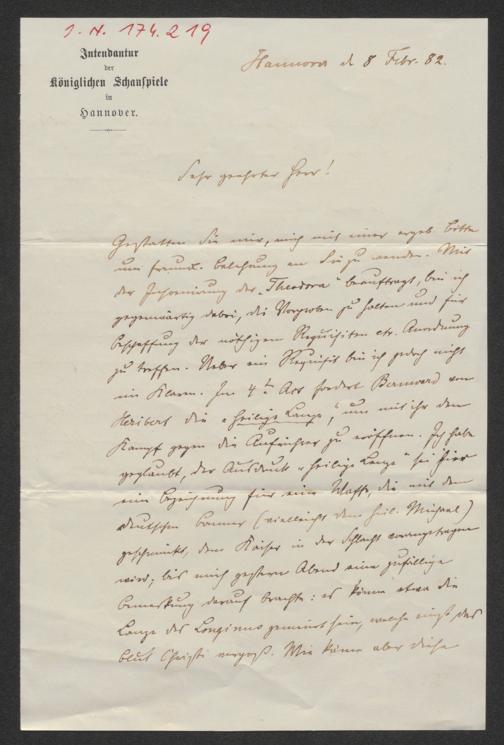 J. N. 174.219
Intendantur
der
Königlichen Schauspiele
in
Hannover.
Hannover d 8 Febr. 82.
Sehr geehrter Herr!
Gestatten Sie mir, mich mit einer ergeb. Bitte
um freundl. Belehrung an Sie zu wenden. Mit
der Inscenirung der „Theodora" beauftragt, bin ich
gegenwärtig dabei, die Vorproben zu halten und für
Beschaffung der nöthigen Requisiten etc. Anordnung
zu treffen. Ueber ein Requisit bin ich jedoch nicht
im Klaren. Im 4ten Act fordert Bernward von
Heribert die „heilige Lanze", um mit ihr den
Kampf gegen die Aufrührer zu eröffnen. Ich habe
geglaubt, der Ausdruck „heilige Lanze" sei hier
eine Bezeichnung für eine Waffe, die mit dem
deutschen Banner (vielleicht dem heil. Michael)
geschmückt, dem Kaiser in der Schlacht vorangetragen
wird; bis mich gestern Abend eine zufällige
Bemerkung darauf brachte: es könne etwa die
Lanze des Longinus gemeint sein, welche einst das
Blut Christi vergoß. Wie könne aber diese